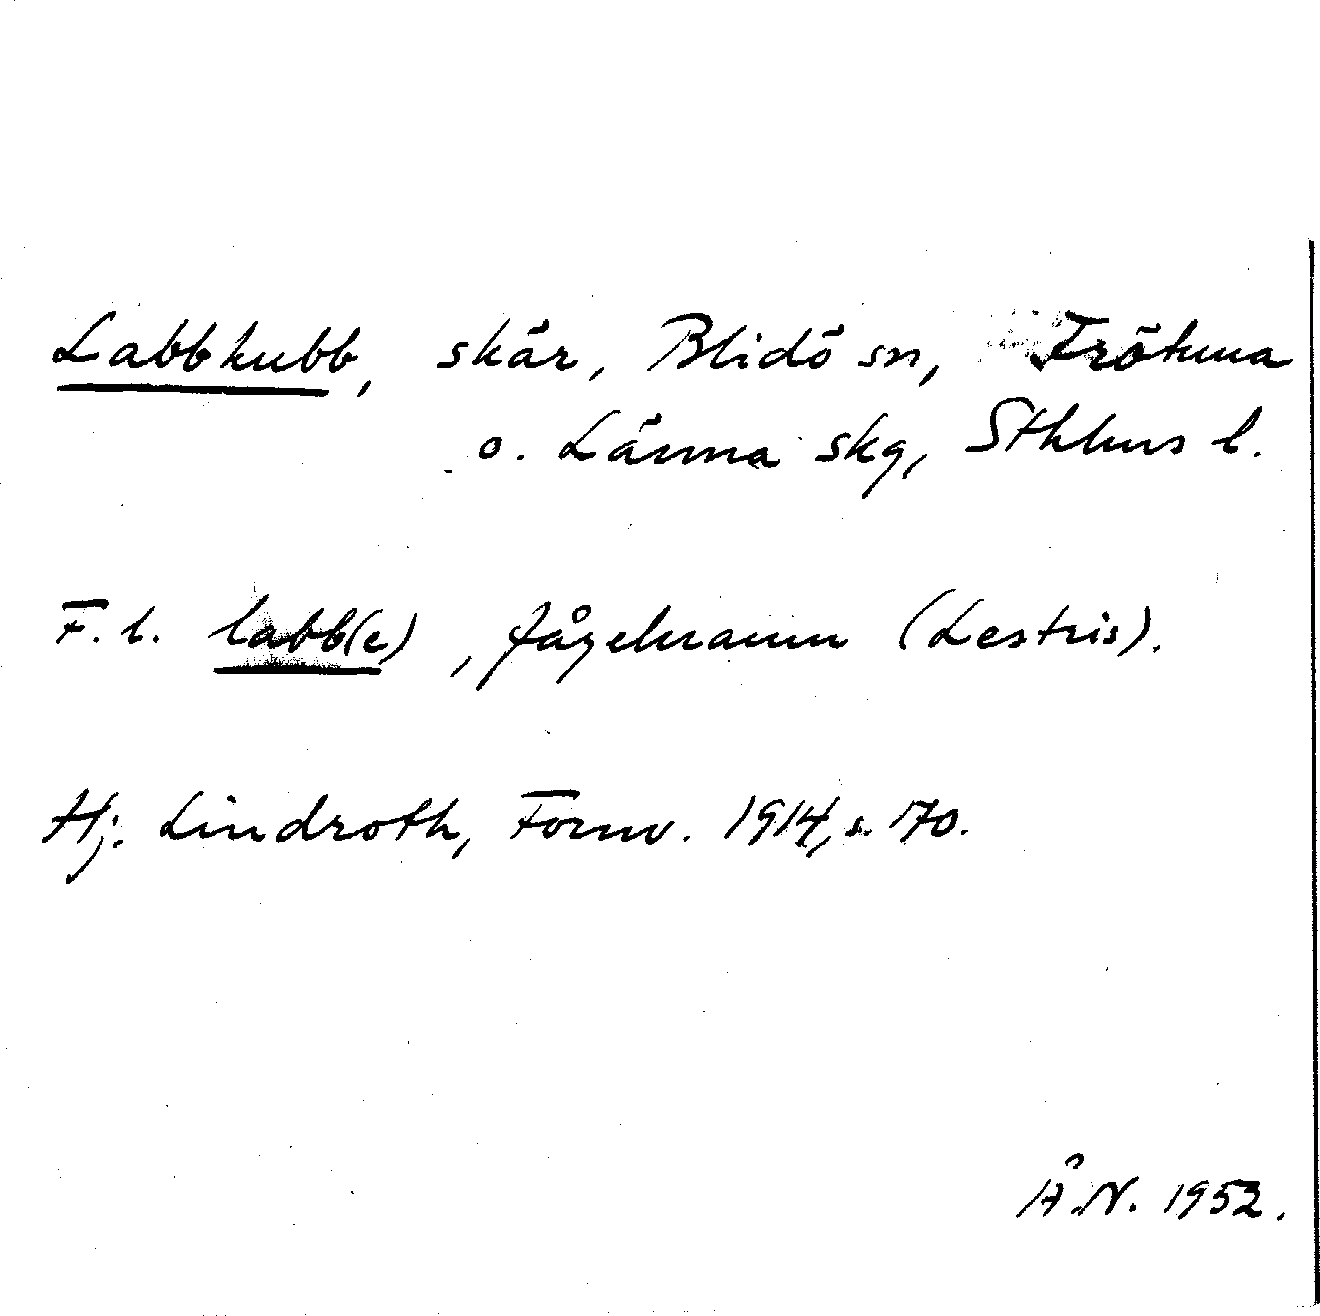 Labbkubb, skär, Blidö sn, Frötuna
o. Länna skg, Sthlms l.
F.l. labb(e), fågelnamn (Lestris).
Hj. Lindroth, Fornv. 1914, s. 170.
Å.N. 1952.